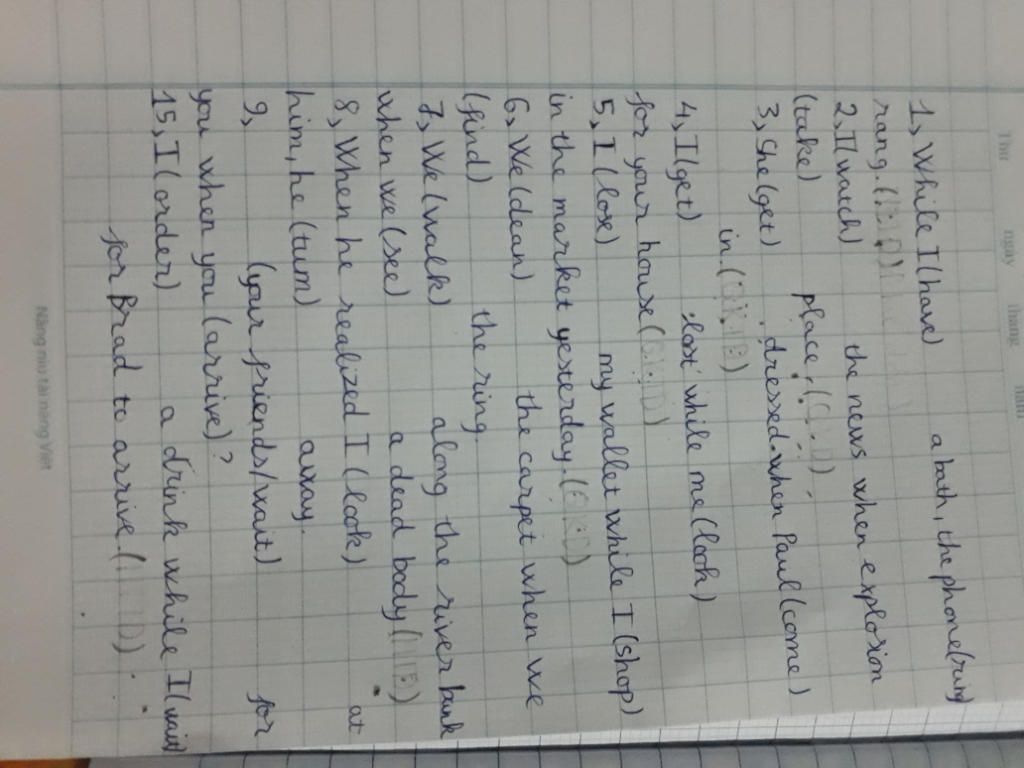 Thứ ngày tháng năm
1, While I (have) a bath, the phone (ring)
rang.
2, I (watch) the news when explosion
(take) place.
3, She (get) dressed when Paul (come)
in.
4, I (get) lost while me (look)
for your house
5, I (lose) my wallet while I (shop)
in the market yesterday.
6, We (clean) the carpet when we
(find) the ring.
7, We (walk) along the river bank
when we (see) a dead body
8, When he realized I (look) at
him, he (turn) away.
9, (your friends/wait) for
you when you (arrive)?
15, I (order) a drink while I (wait)
for Brad to arrive.
Nâng niu tài năng Việt